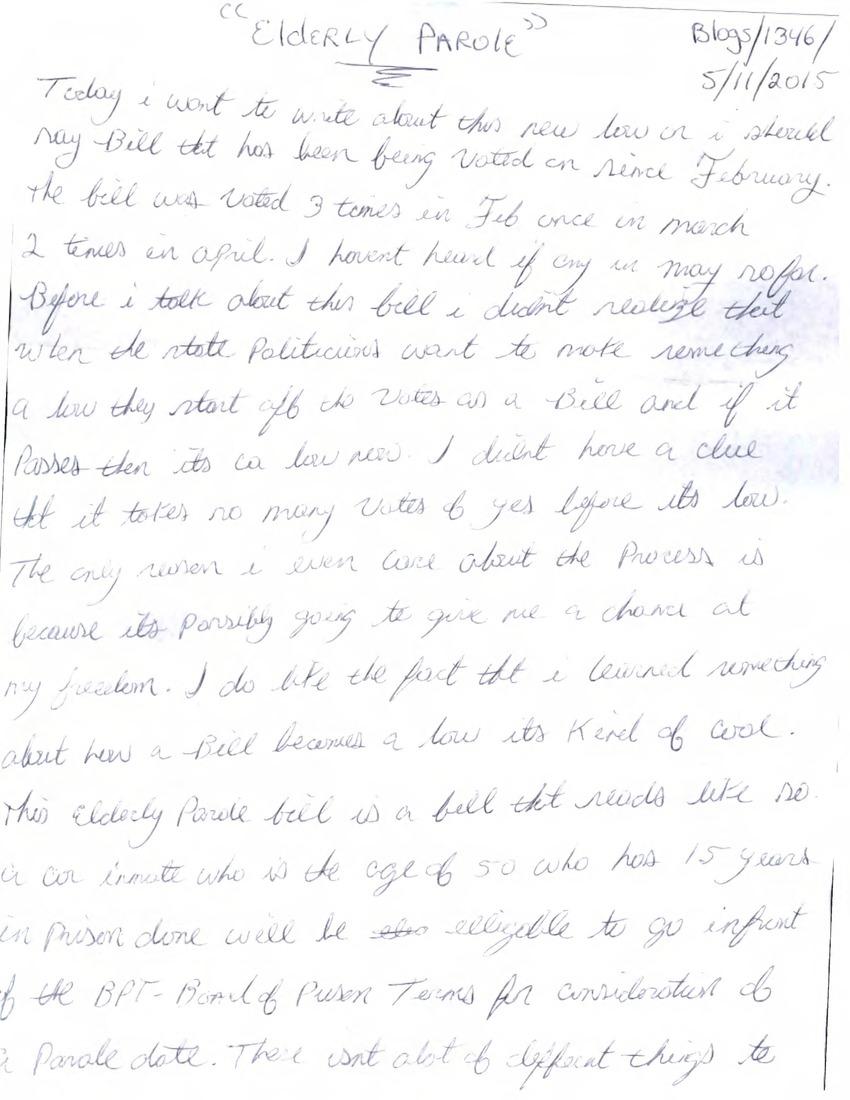 "Elderly Parole"
Blogs/1346/
5/11/2015
Today i want to write about this new law or i should
say Bill tht has been being voted on since February.
the bill was voted 3 times in Feb once in march
2 times in april. I havent heard if any in may so far.
Before i talk about this bill i didnt realize that
when the state Politicians want to make something
a law they start off the votes as a Bill and if it
Passes then its a law now. I didnt have a clue
tht it takes so many votes of yes before its law.
The only reason i even care about the Process is
because its Possibly going to give me a chance at
my freedom. I do like the fact tht i learned something
about how a Bill becomes a law its Kind of cool.
This Elderly Parole bill is a bill tht reads like so.
a inmate who is the age of 50 who has 15 years
in Prison done will be elligable to go infront
of the BPT-Board of Prison Terms for consideration of
a Parole date. There isnt alot of different things to